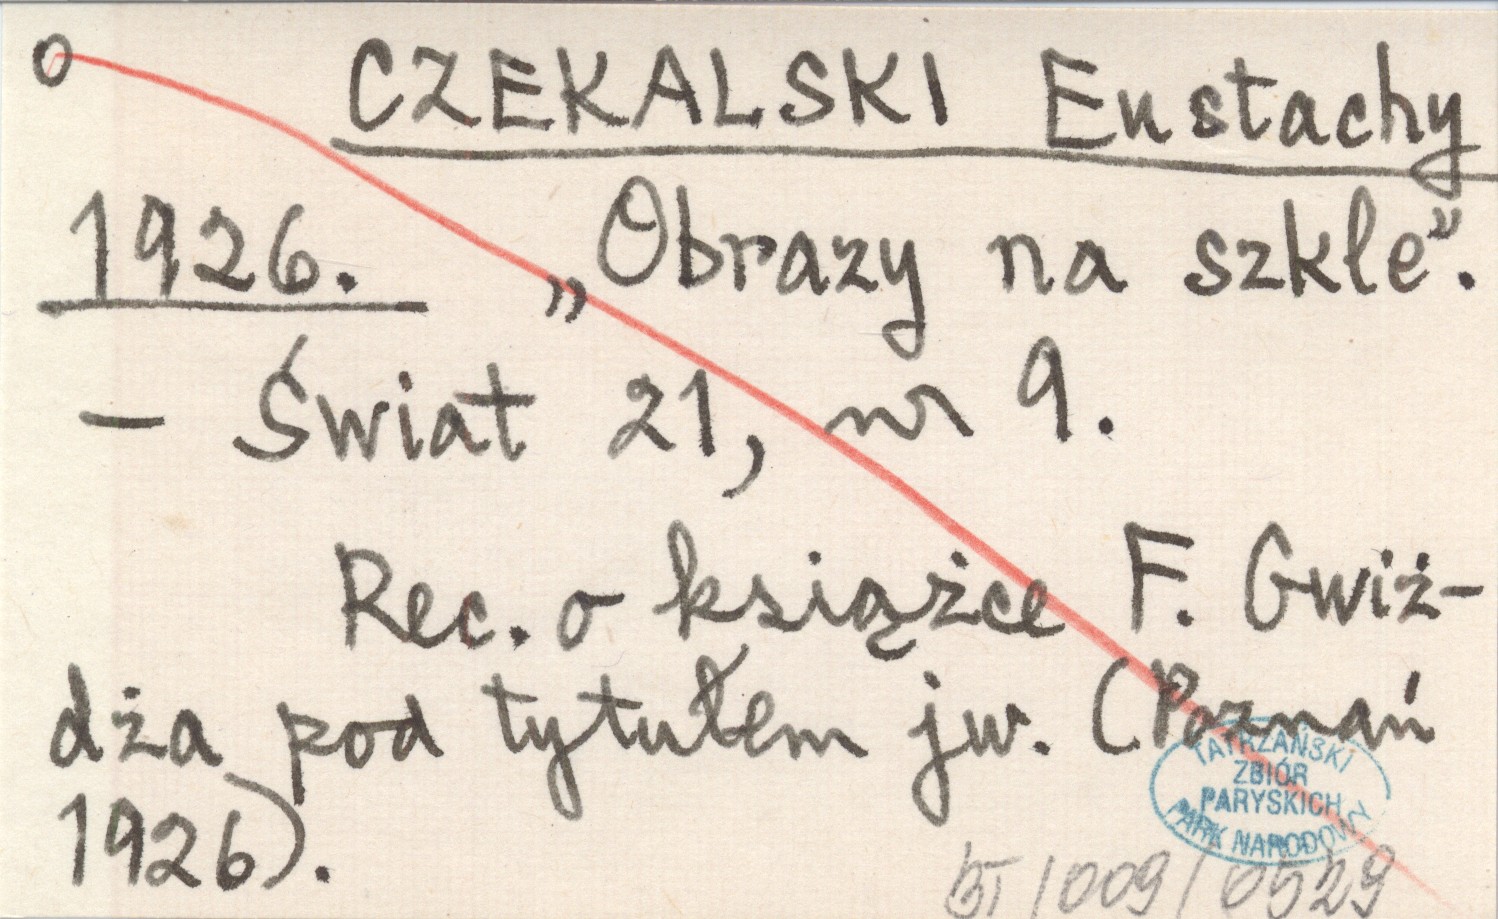 o CZEKALSKI Eustachy
1926. „Obrazy na szkle”.
– Świat 21, nr 9.
Rec. o książce F. Gwiż-
dża pod tytułem jw. (Poznań
1926).
TATRZAŃSKI
ZBIÓR
PARYSKICH
PARK NARODOWY
BT/009/0529